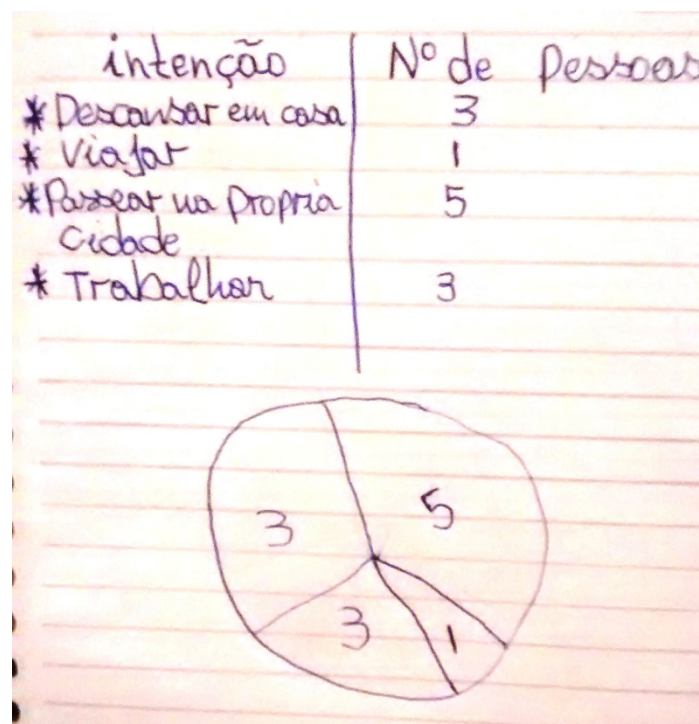 intenção Nº de Pessoas
* Descansar em casa 3
* Viajar 1
* Passear na Propria 5
Cidade
* Trabalhar 3
3 5
3 1